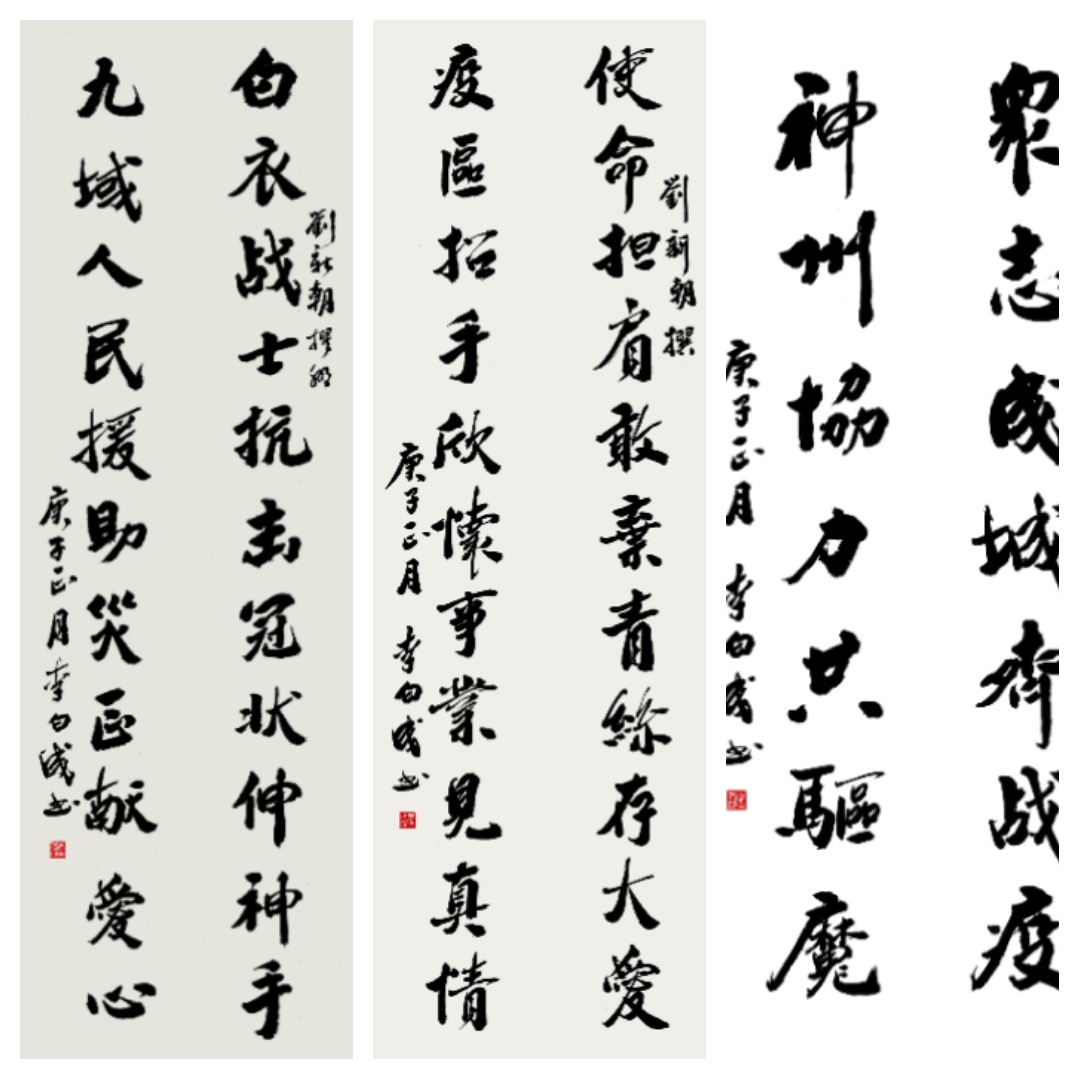 白衣战士抗击冠状伸神手
劉新朝撰聯
九域人民援助災区献愛心
庚子正月李白成书
使命担肩敢棄青絲存大愛
劉新朝撰
疫區招手欣懷事業見真情
庚子正月 李白成书
眾志成城齊战疫
神州協力共驅魔
庚子正月 李白成书